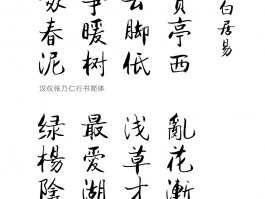 白居易
亭西
云脚低
争暖树
春泥
汉仪张乃仁行书简体
亂花漸
浅草才
最爱湖
绿楊陰